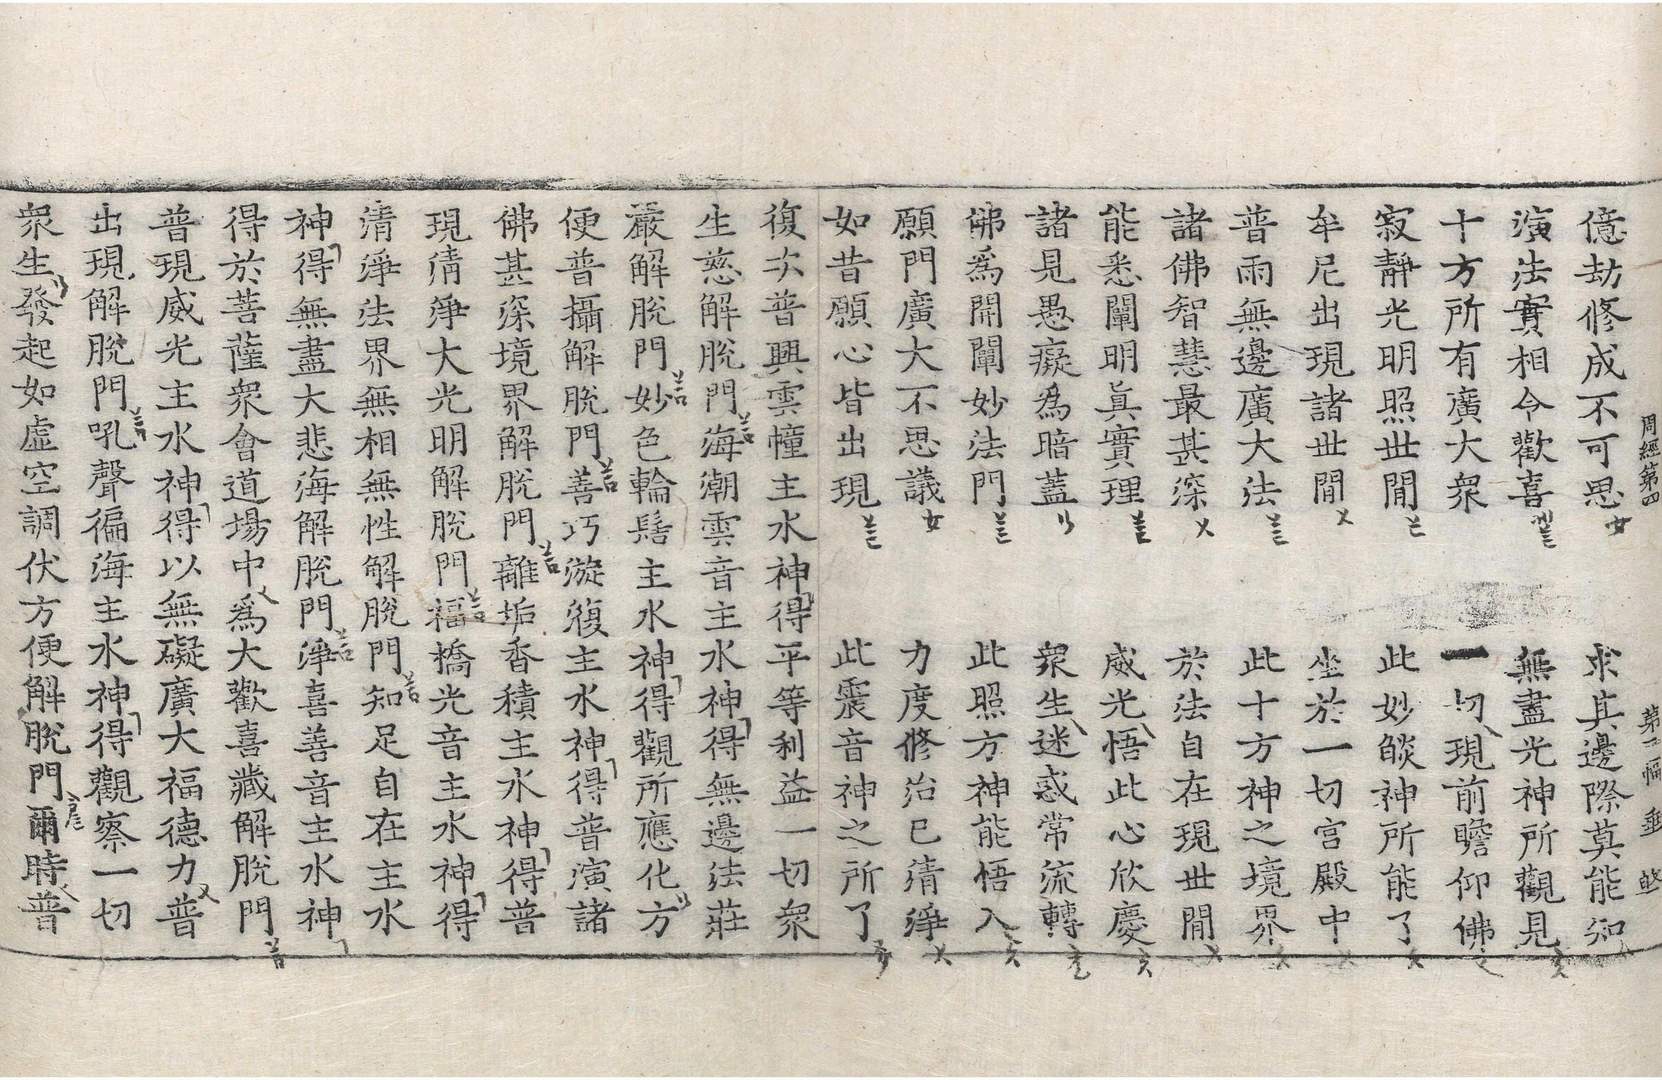 周經第四 第二幅 垂 𢓜
億劫修成不可思 求其邊際莫能知
演法實相令歡喜 無盡光神所觀見
十方所有廣大衆 一切現前瞻仰佛
寂靜光明照世閒 此妙燄神所能了
牟尼出現諸世間 坐於一切宮殿中
普雨無邊廣大法 此十方神之境界
諸佛智慧最甚深 於法自在現世閒
能悉闡明眞實理 威光悟此心欣慶
諸見愚癡爲暗蓋 衆生迷惑常流轉
佛爲開闡妙法門 此照方神能悟入
願門廣大不思議 力度修治已清淨
如昔願心皆出現 此震音神之所了
復次普興雲幢主水神得平等利益一切衆
生慈解脫門海潮雲音主水神得無邊法莊
嚴解脫門妙色輪髻主水神得觀所應化方
便普攝解脫門善巧漩澓主水神得普演諸
佛甚深境界解脫門離垢香積主水神得普
現清淨大光明解脫門福橋光音主水神得
清淨法界無相無性解脫門知足自在主水
神得無盡大悲海解脫門淨喜善音主水神
得於菩薩衆會道場中爲大歡喜藏解脫門
普現威光主水神得以無礙廣大福德力普
出現解脫門吼聲徧海主水神得觀察一切
衆生發起如虛空調伏方便解脫門爾時普